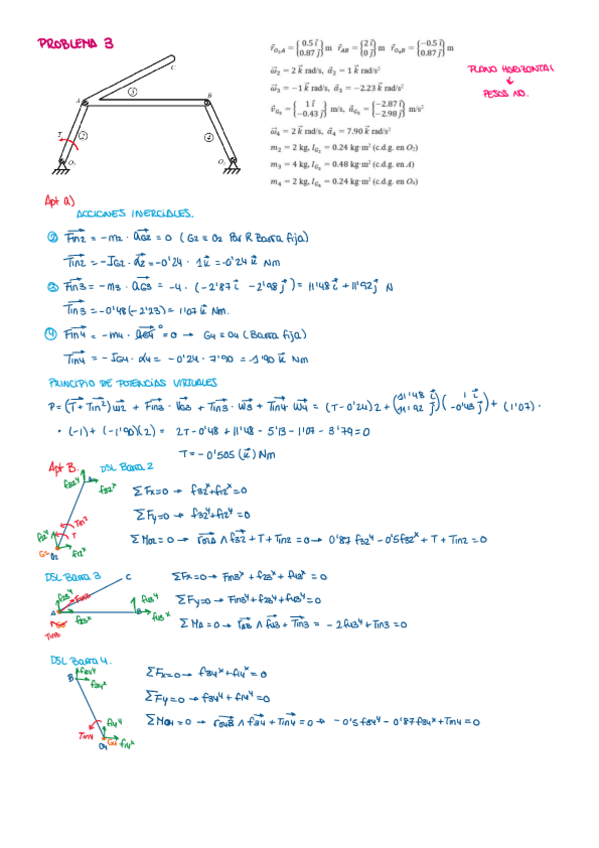 PROBLEMA 3
r⃗O₂A = {0.5 i⃗ / 0.87 j⃗} m  r⃗AB = {2 i⃗ / 0 j⃗} m  r⃗O₄B = {−0.5 i⃗ / 0.87 j⃗} m
ω⃗₂ = 2 k⃗ rad/s, α⃗₂ = 1 k⃗ rad/s²
ω⃗₃ = −1 k⃗ rad/s, α⃗₃ = −2.23 k⃗ rad/s²
v⃗G₃ = {1 i⃗ / −0.43 j⃗} m/s, a⃗G₃ = {−2.87 i⃗ / −2.98 j⃗} m/s²
ω⃗₄ = 2 k⃗ rad/s, α⃗₄ = 7.90 k⃗ rad/s²
m₂ = 2 kg, IG₂ = 0.24 kg·m² (c.d.g. en O₂)
m₃ = 4 kg, IG₃ = 0.48 kg·m² (c.d.g. en A)
m₄ = 2 kg, IG₄ = 0.24 kg·m² (c.d.g. en O₄)
PLANO HORIZONTAL
↓
PESOS NO.
C
A
③
B
T
②
④
O₂
O₄
Apt a)
ACCIONES INERCIALES.
② Fin2 = -m2 · aG2 = 0 (G2 = O2 Por R Barra fija)
Tin2 = -IG2 · α2 = -0'24 · 1k⃗ = -0'24 k⃗ Nm
③ Fin3 = -m3 · aG3 = -4 · (-2'87 i⃗ -2'98 j⃗) = 11'48 i⃗ + 11'92 j⃗ N
Tin3 = -0'48(-2'23) = 1'07 k⃗ Nm.
④ Fin4 = -m4 · aG4 ⁰ = 0 → G4 = O4 (Barra fija)
Tin4 = -IG4 · α4 = -0'24 · 7'90 = -1'90 k⃗ Nm
PRINCIPIO DE POTENCIAS VIRTUALES
P = (T + Tin2) ω2 + Fin3 · VG3 + Tin3 · ω3 + Tin4 · ω4 = (T-0'24)2 + (11'48 i⃗ / 11'92 j⃗)(1 i⃗ / -0'43 j⃗) + (1'07) ·
· (-1) + (-1'90)(2) = 2T - 0'48 + 11'48 - 5'13 - 1'07 - 3'79 = 0
T = -0'505 (k⃗) Nm
Apt B. DSL Barra 2
f32ʸ
A
f32ˣ
ΣFx=0 → f32ˣ + f12ˣ = 0
ΣFy=0 → f32ʸ + f12ʸ = 0
Tin2
f12ʸ
T
G2
O2
f12ˣ
ΣMO2=0 → rO2A ∧ f32 + T + Tin2 = 0 → 0'87 f32ʸ - 0'5 f32ˣ + T + Tin2 = 0
DSL Barra 3
C
ΣFx=0 → Fin3ˣ + f23ˣ + f43ˣ = 0
f23ʸ
Fin3
f43ʸ
ΣFy=0 → Fin3ʸ + f23ʸ + f43ʸ = 0
A
f23ˣ
B
f43ˣ
Tin3
ΣMA=0 → rAB ∧ f43 + Tin3 = -2f43ʸ + Tin3 = 0
DSL Barra 4.
f34ʸ
B
f34ˣ
ΣFx=0 → f34ˣ + f14ˣ = 0
ΣFy=0 → f34ʸ + f14ʸ = 0
f14ʸ
Tin4
O4
G4
f14ˣ
ΣMO4=0 → rO4B ∧ f34 + Tin4 = 0 → -0'5 f34ʸ - 0'87 f34ˣ + Tin4 = 0